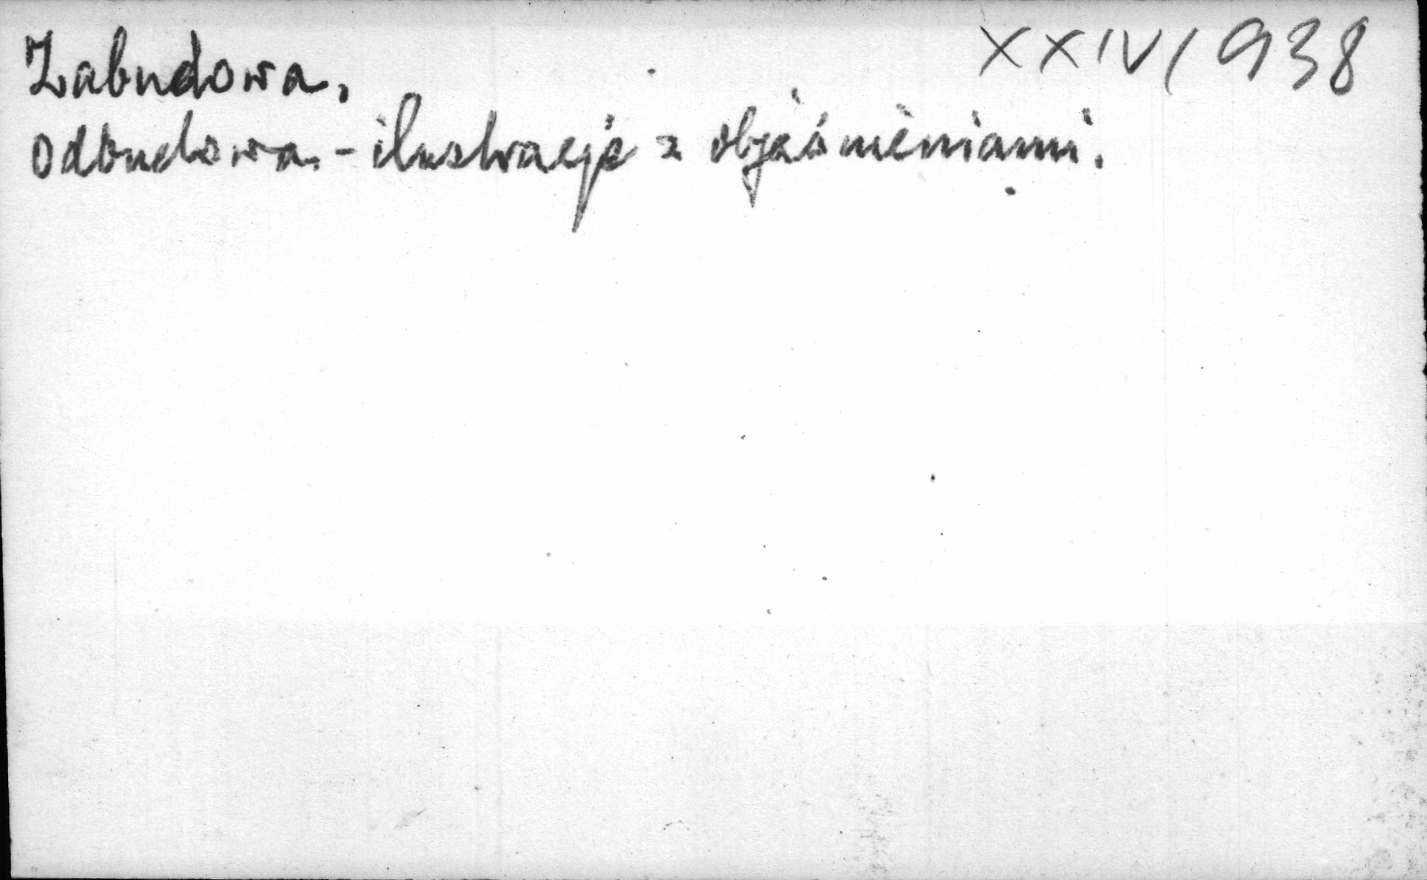 Zabudowa. XXIV/938
odbudowa. - ilustracje z objaśnieniami.